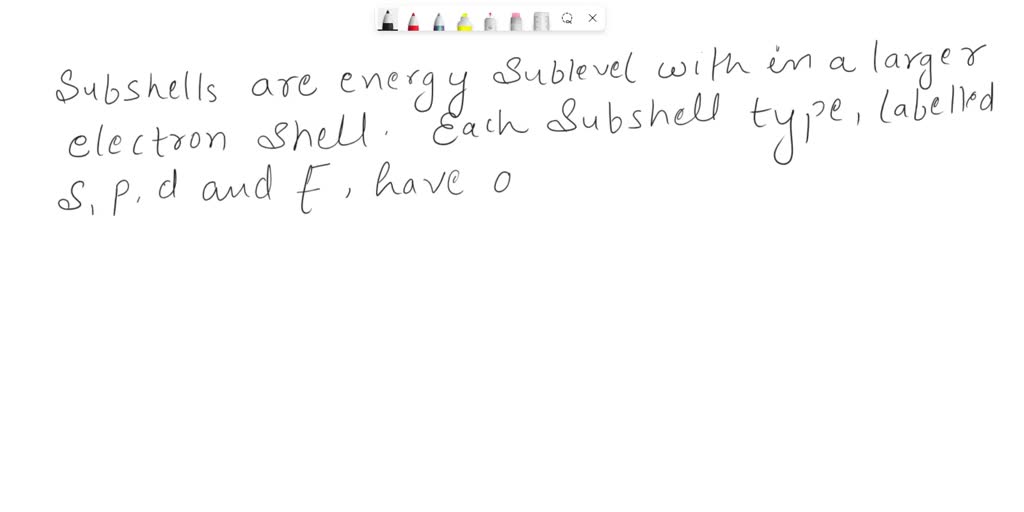 Subshells are energy Sublevel with in a larger
electron shell. Each Subshell type, labelled
s, p, d and f, have o